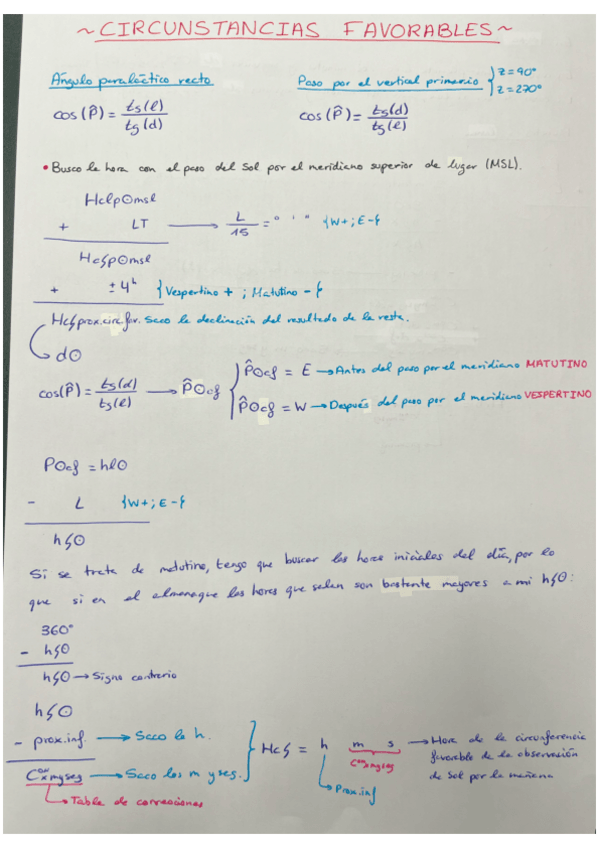 ~CIRCUNSTANCIAS FAVORABLES~
Ángulo paraláctico recto
Paso por el vertical primario { z=90°
z=270°
cos (P̂) = tg(l) / tg(d)
cos (P̂) = tg(d) / tg(l)
• Busco la hora con el paso del Sol por el meridiano superior de lugar (MSL).
Hclp⊙msl
+ LT → L/15 = ° ' " {W+; E-}
HcGp⊙msl
+ ±4h {Vespertino + ; Matutino -}
HcG prox.circ.fav. Saco la declinación del resultado de la resta.
d⊙
cos(P̂) = tg(d) / tg(l) → P̂⊙cf
P̂⊙cf = E → Antes del paso por el meridiano MATUTINO
P̂⊙cf = W → Después del paso por el meridiano VESPERTINO
P⊙cf = hl⊙
- L {W+; E-}
hG⊙
Si se trata de matutino, tengo que buscar las horas iniciales del día, por lo
que si en el almanaque las horas que salen son bastante mayores a mi hG⊙:
360°
- hG⊙
hG⊙ → Signo contrario
hG⊙
- prox.inf. → Saco la h.
Cᵒⁿ x m y seg → Saco los m y seg.
Tabla de correciones
HcG = h m s → Hora de la circunferencia
favorable de la observación
de Sol por la mañana
Cᵒⁿ x m y seg
Prox.inf